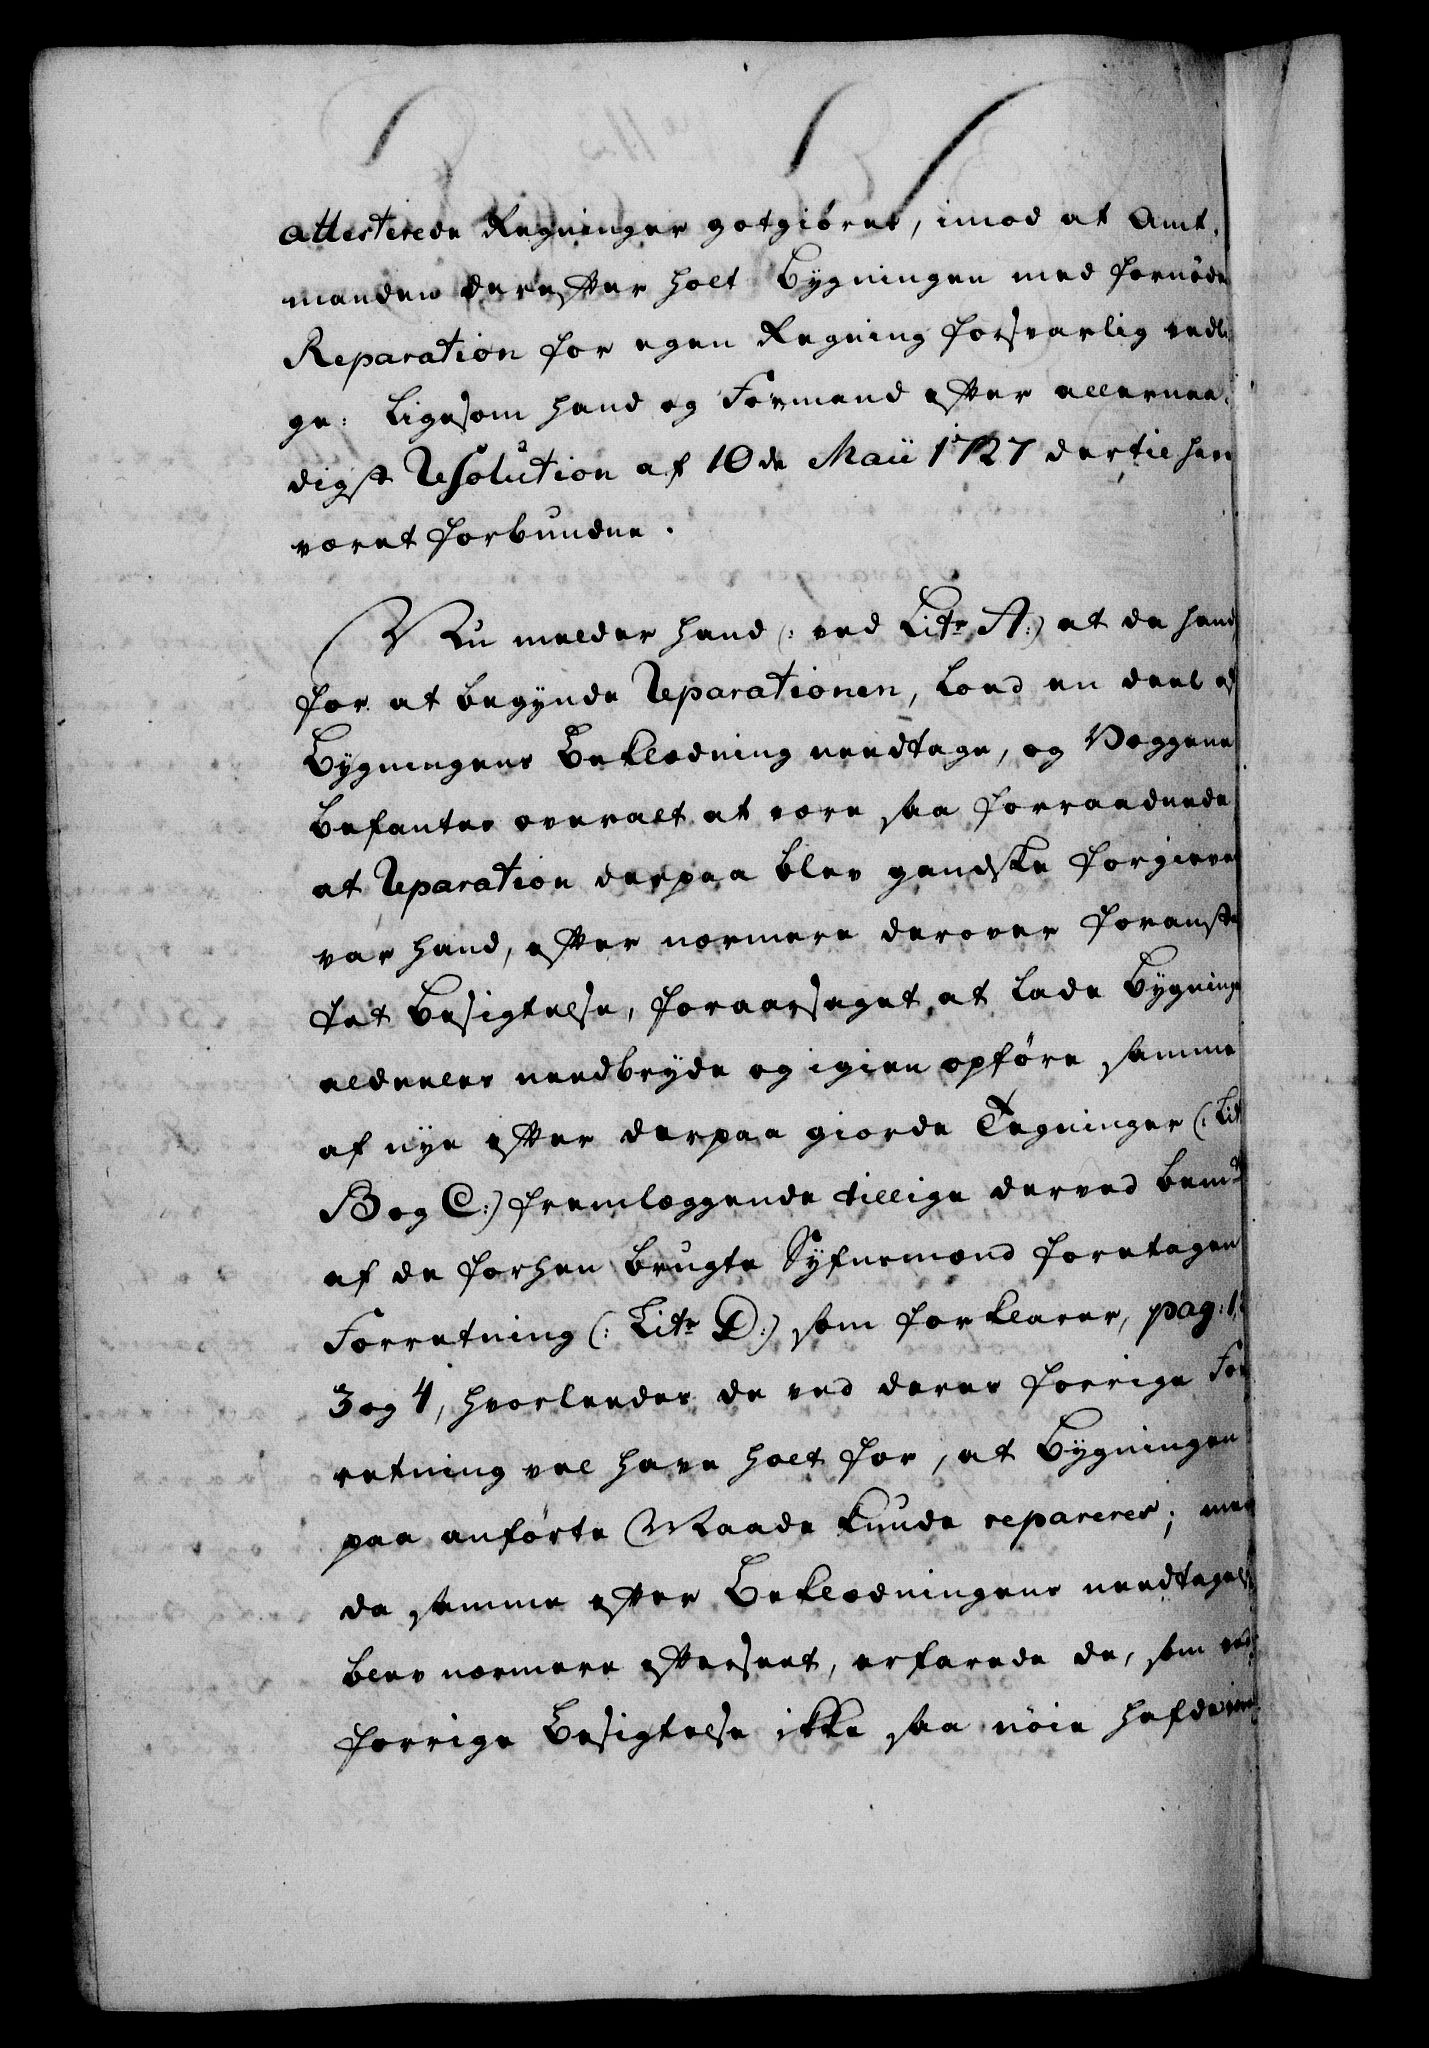 attesterede Regninger gotgiöret, imod at Amt,
manden derefter holt Bygningen med fornöde
Reparation for egen Regning forsvarlig vedli
ge: Ligesom hand og Formænd efter allernaa,
digst Resolution af 10de Maii 1727 dertil har
været forbunden.
Nu melder hand (: ved Litr A:) at da hand
for at begynde Reparationen, loed en deel af
Bygningens Beklædning needtage, og Væggene
befantes overalt at være saa forraadnede
at Reparation derpaa blev gandske forgieves
var hand, efter nærmere derover foranstal
tet Besigtelse, foraarsaget at lade Bygningen
aldeeles needbryde og igien opföre samme
af nye efter derpaa giorde Tegninger (: Litr
B og C:) fremlæggende tillige derved bemte
af de forhen brugte Syfnsmænd foretagen
Forretning (: Litr D:) som forklarer, pag: 1,
3 og 4, hvorledes de ved deres forrige For
retning vel have holt for, at Bygningen
paa anförte Maade kunde repareres; men
da samme efter Beklædningens needtagelse
blev nærmere efterseet, erfarede de, som ved
forrige Besigtelse ikke saa nöie hafde